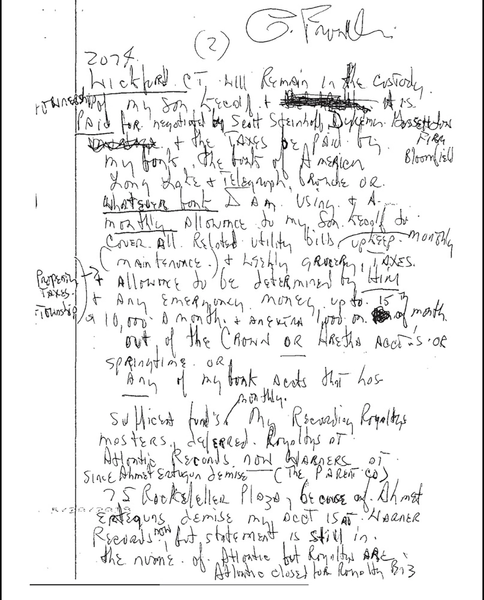 (2) G. Franklin
2074
Wickford CT. will Remain in the custody
ownership of my Son, Kecalf + it is
Paid for negotiated by Scott Steinhoff, Dykema Gossett Law
Firm
Bloomfield
+ the TAXES be PAID by
my bank, the bank of America
Long Lake + Telegraph, Or
Whatever bank I Am Using, + A
monthly Allowance to my Son Kecalf to
Cover All Related utility bills, upkeep, monthly
(maintenance.) + Weekly groceries, TAXES.
Property
TAXES.
Township
+ Allowance to be determined by Him
+ Any emergency money up to 15th
10,000. a month + an extra 1,000 on of month
out of the Crown OR Aretha Acct's. OR
Springtime. OR
Any of my bank Accts that has
monthly.
Sufficent fund's My Recording Royaltys
masters, deferred. Royaltys at
Atlantic Records, now Warners at
Since Ahmet Ertegun demise (The PARENT CO)
75 Rockefeller Plaza, because of Ahmet
Erteguns demise my Acct is at Warner
Records now, but statement is still in
the name of Atlantic but Royaltys ARE
Atlantic closed for Royalty Biz